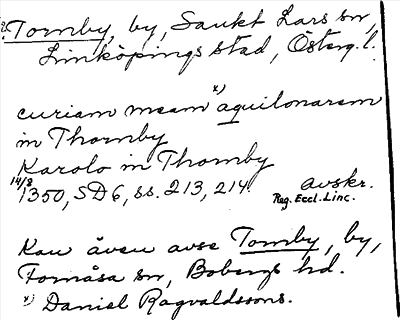 Tornby, by, Sankt Lars sn,
Linköpings stad, Österg. l.
curiam meam x) aquilonarem
in Thornby
Karolo in Thornby
14/8 1350, SD 6, ss. 213, 214. Avskr.
Reg. Eccl. Linc.
Kan även avse Tornby, by,
Fornåsa sn, Bobergs hd.
x) Daniel Ragvaldssons.